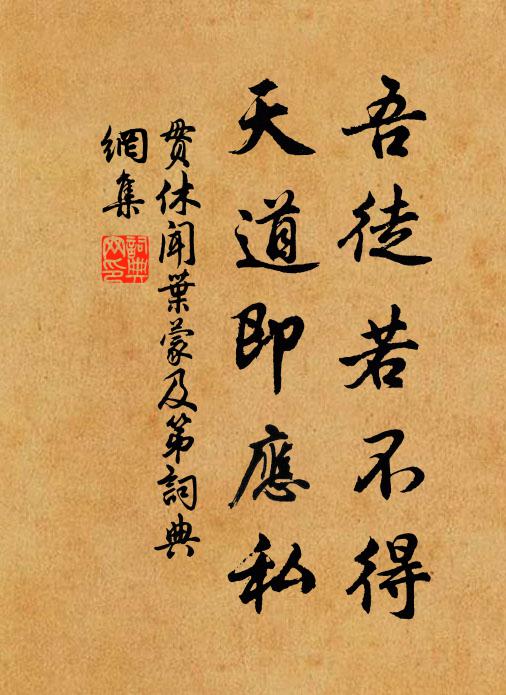 吾徒若不得
天道即應私
貫休聞葉蒙及第詞典
網集
詞典
网印